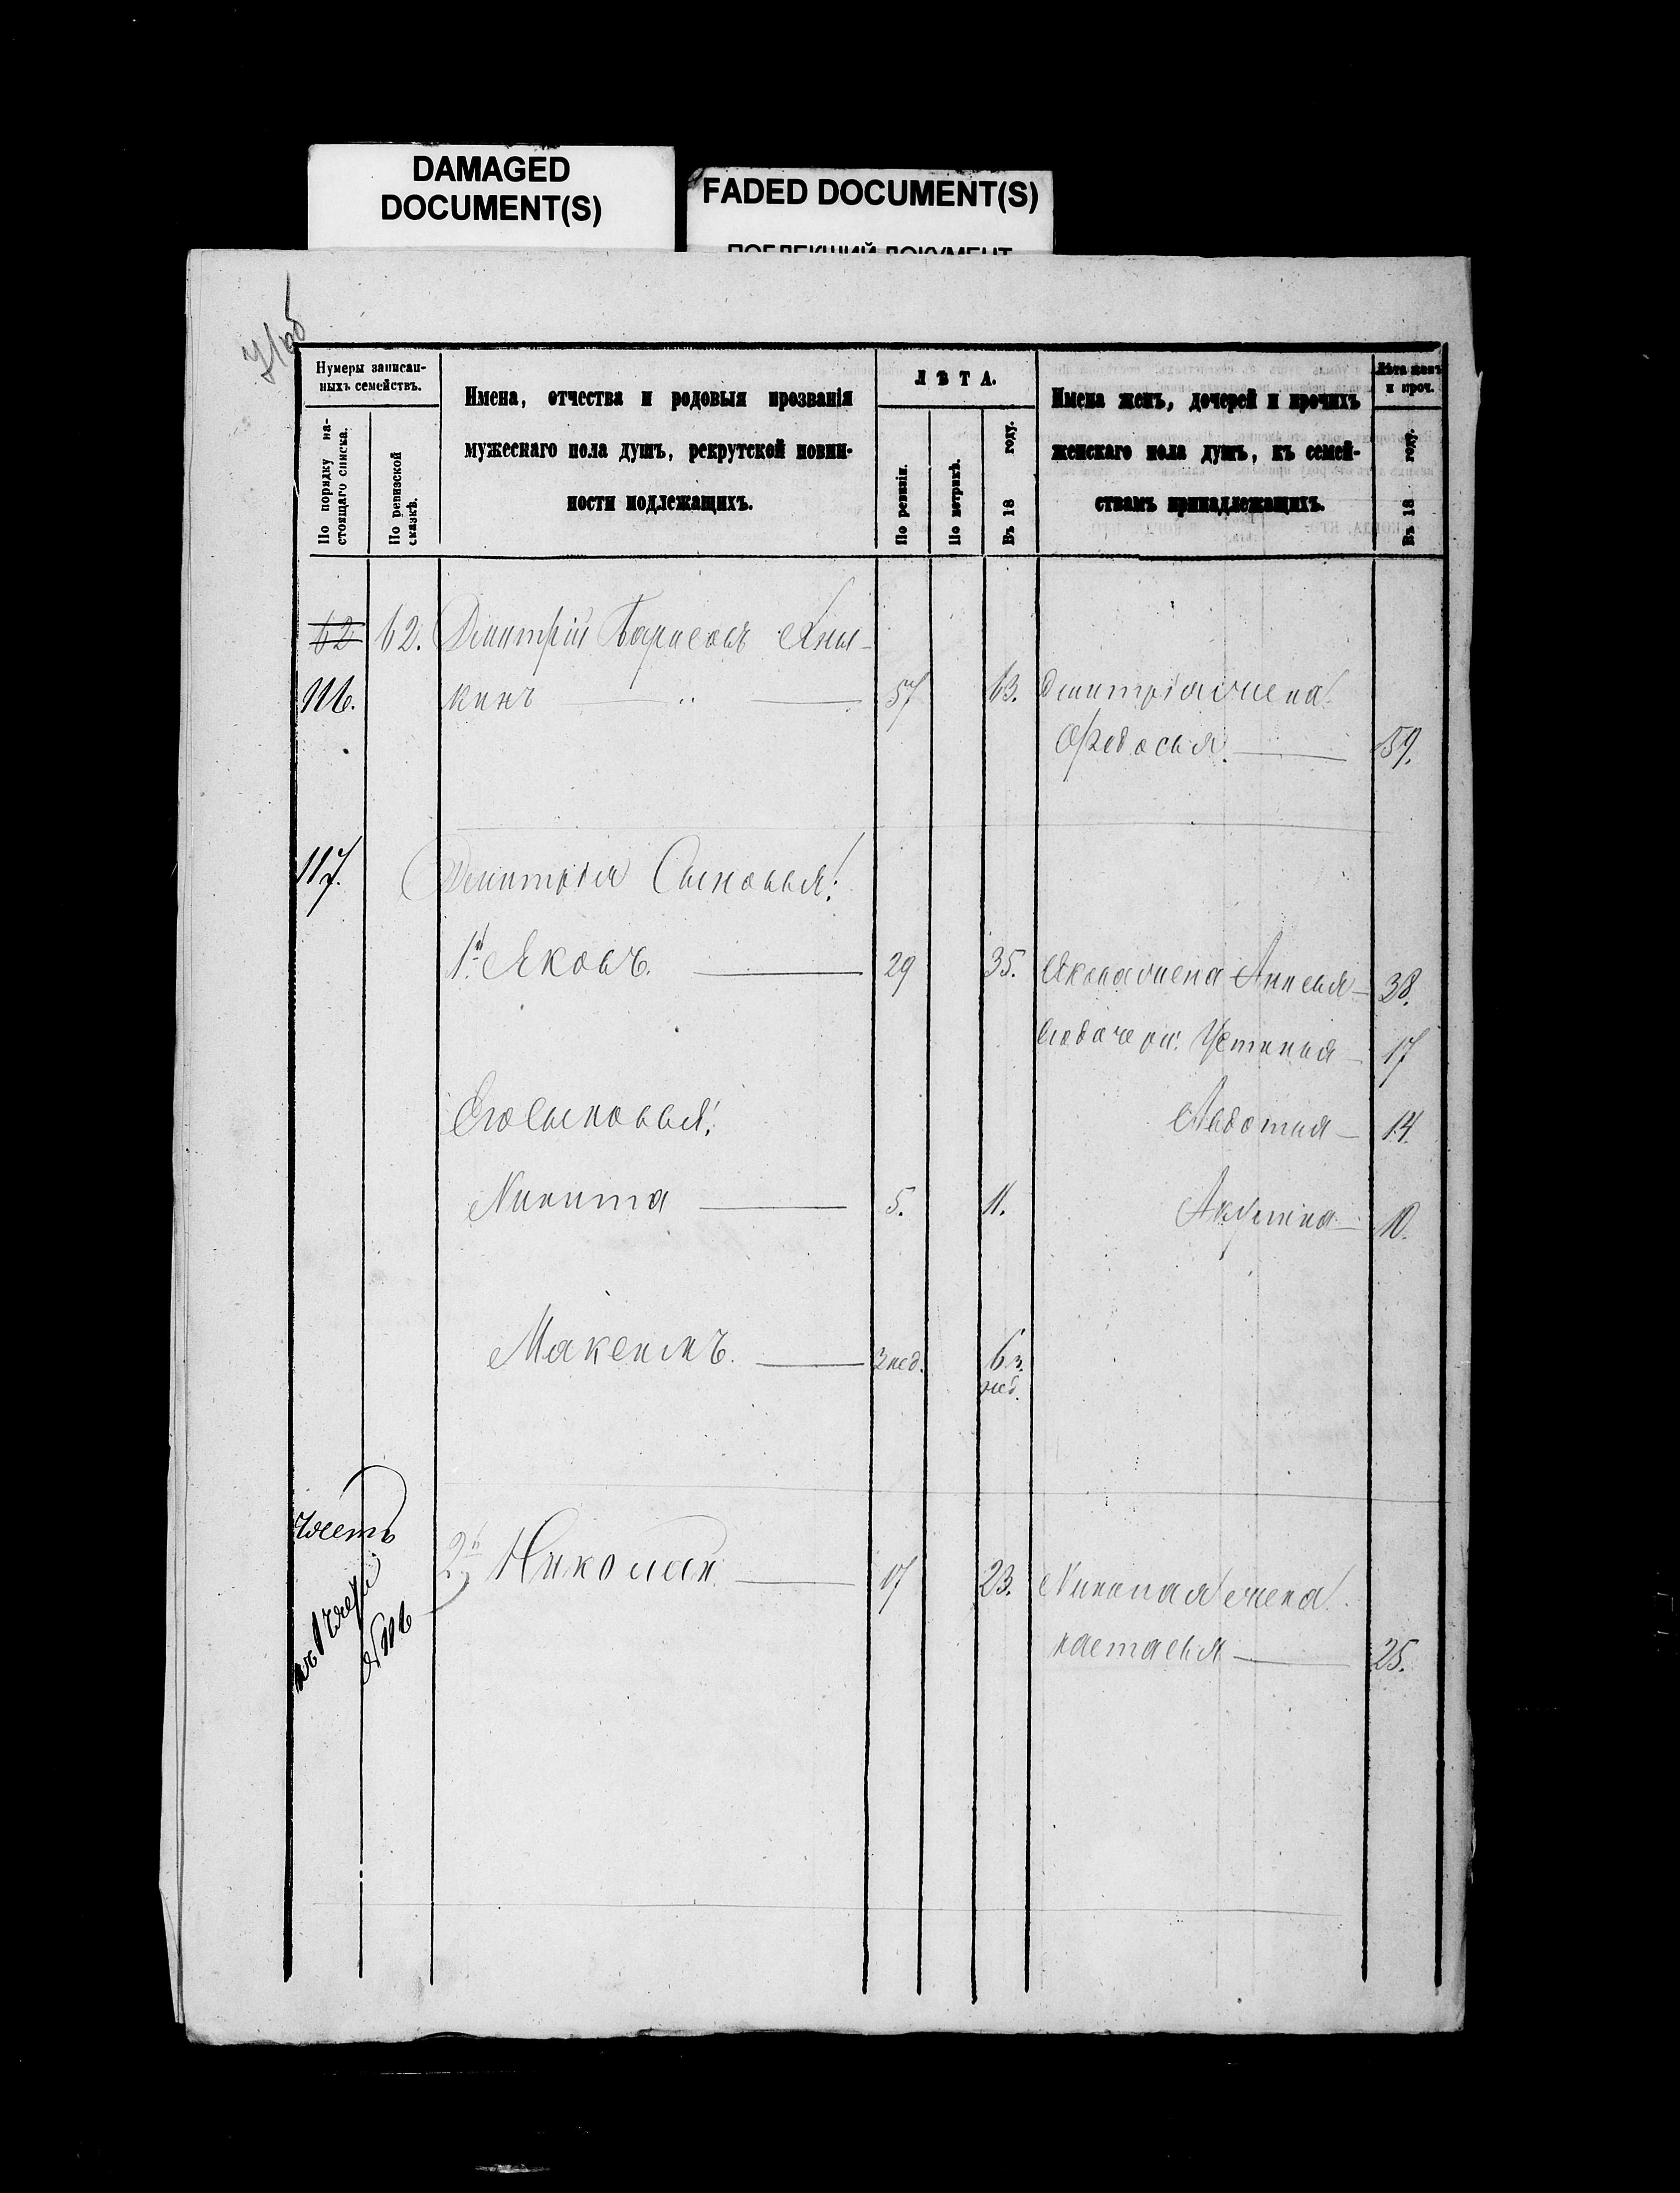 DAMAGED
DOCUMENT(S)
FADED DOCUMENT(S)
ПОБЛЕКШИЙ ДОКУМЕНТ
Нумеры записан-
ныхъ семействъ.
По порядку на-
стоящаго списка.
По ревизской
сказкѣ.
Имена, отчества и родовыя прозванія
мужескаго пола душъ, рекрутской повин-
ности подлежащихъ.
ЛѢТА.
По ревизіи.
По метрикѣ.
Въ 18 году.
Имена женъ, дочерей и прочихъ
женскаго пола душъ, къ семей-
ствамъ принадлежащихъ.
Лѣта женъ
и проч.
Въ 18 году.
62 62. Дмитрій Борисовъ Аны-
116. кинъ 57 63. Дмитрія жена
Федосья 59.
117. Дмитрія Сыновья:
1й Яковъ. 29 35. Якова жена Анисья 38.
Его дочери: Устинья 17
Его Сыновья: Авдотья 14.
Никита 5. 11. Акулина 10.
Максимъ. 3 нед. 6 3.
нед.
2й Николай 17 23. Николая жена
настасья 25.
№ 116